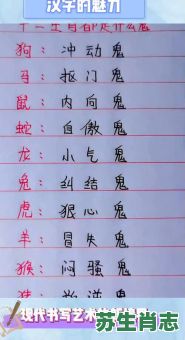 汉字的魅力
十二生肖都是什么鬼
狗：冲动鬼
马：抠门鬼
鼠：内向鬼
蛇：自傲鬼
龙：小气鬼
兔：纠结鬼
虎：狠心鬼
羊：冒失鬼
猴：闷骚鬼
猪：叛逆鬼
现代书写艺术
苏生肖志